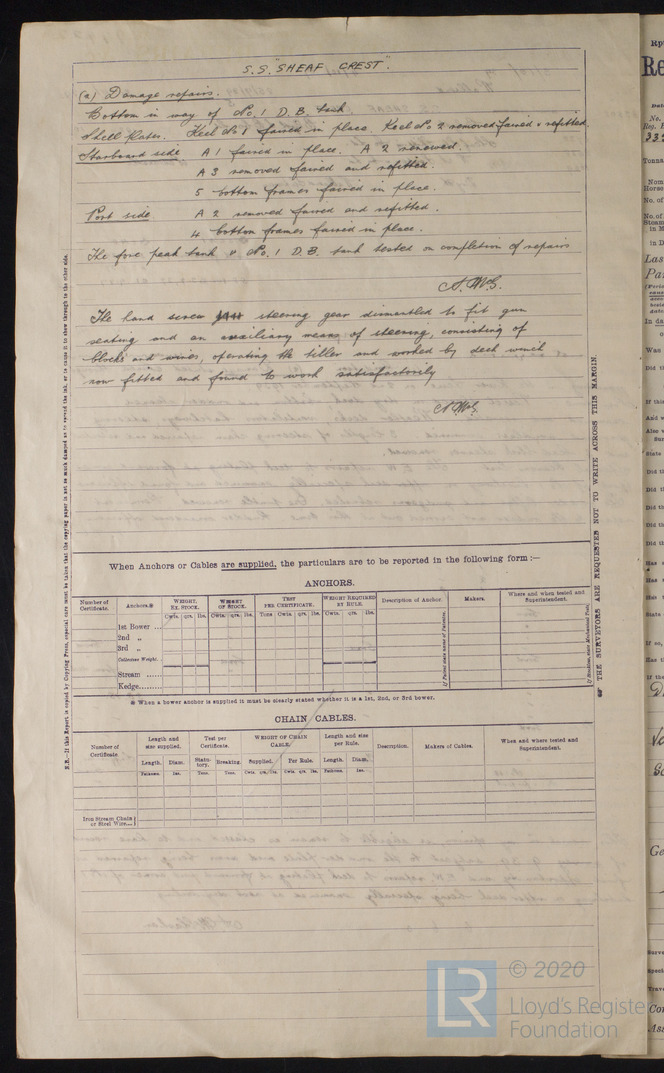 S.S. "SHEAF CREST".
(a) Damage repairs.
Bottom in way of No. 1 D.B. tank
Shell Plates. Keel No 1 faired in place. Keel No. 2 removed faired & refitted
Starboard side A 1 faired in place. A 2 renewed.
A 3 removed faired and refitted.
5 bottom frames faired in place.
Port side A 2 removed faired and refitted.
4 bottom frames faired in place.
The fore peak tank & No. 1 D.B. tank tested on completion of repairs
The hand screw steering gear dismantled to fit gun
seating and an auxiliary means of steering, consisting of
blocks and wires, operating the tiller and worked by deck winch
now fitted and found to work satisfactorily
When Anchors or Cables are supplied, the particulars are to be reported in the following form :—
ANCHORS.
Number of Certificate. Anchors.* WEIGHT, EX. STOCK. WEIGHT OF STOCK. TEST PER CERTIFICATE. WEIGHT REQUIRED BY RULE. Description of Anchor. Makers. Where and when tested and Superintendent.
Cwts. qrs. lbs. Cwts. qrs. lbs. Tons. Cwts. qrs. lbs. Cwts. qrs. lbs.
1st Bower ...
2nd „
3rd „
Collective Weight.
Stream ......
Kedge.........
* When a bower anchor is supplied it must be clearly stated whether it is a 1st, 2nd, or 3rd bower.
CHAIN CABLES.
Number of Certificate. Length and size supplied. Test per Certificate. WEIGHT OF CHAIN CABLE. Length and size per Rule. Description. Makers of Cables. When and where tested and Superintendent.
Length. Diam. Statutory. Breaking. Supplied. Per Rule. Length. Diam.
Fathoms. Ins. Tons. Tons. Cwts. qrs. lbs. Cwts. qrs. lbs. Fathoms. Ins.
Iron Stream Chain
or Steel Wire...
THE SURVEYORS ARE REQUESTED NOT TO WRITE ACROSS THIS MARGIN.
LR
© 2020
Lloyd's Register
Foundation